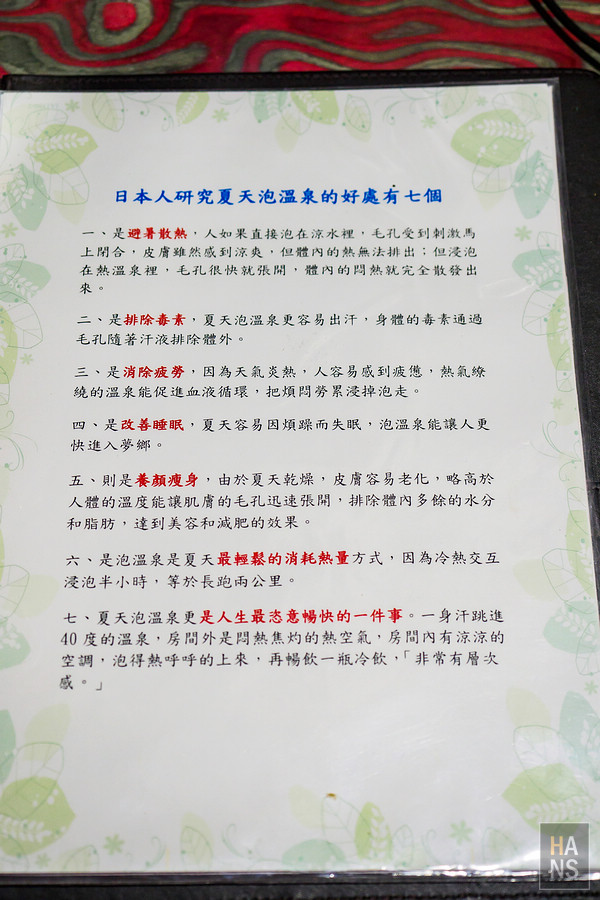 日本人研究夏天泡溫泉的好處有七個
一、是避暑散熱，人如果直接泡在涼水裡，毛孔受到刺激馬
上閉合，皮膚雖然感到涼爽，但體內的熱無法排出；但浸泡
在熱溫泉裡，毛孔很快就張開，體內的悶熱就完全散發出
來。
二、是排除毒素，夏天泡溫泉更容易出汗，身體的毒素通過
毛孔隨著汗液排除體外。
三、是消除疲勞，因為天氣炎熱，人容易感到疲憊，熱氣繚
繞的溫泉能促進血液循環，把煩悶勞累浸掉泡走。
四、是改善睡眠，夏天容易因煩躁而失眠，泡溫泉能讓人更
快進入夢鄉。
五、則是養顏瘦身，由於夏天乾燥，皮膚容易老化，略高於
人體的溫度能讓肌膚的毛孔迅速張開，排除體內多餘的水分
和脂肪，達到美容和減肥的效果。
六、是泡溫泉是夏天最輕鬆的消耗熱量方式，因為冷熱交互
浸泡半小時，等於長跑兩公里。
七、夏天泡溫泉更是人生最恣意暢快的一件事。一身汗跳進
40 度的溫泉，房間外是悶熱焦灼的熱空氣，房間內有涼涼的
空調，泡得熱呼呼的上來，再暢飲一瓶冷飲，「非常有層次
感。」
HANS